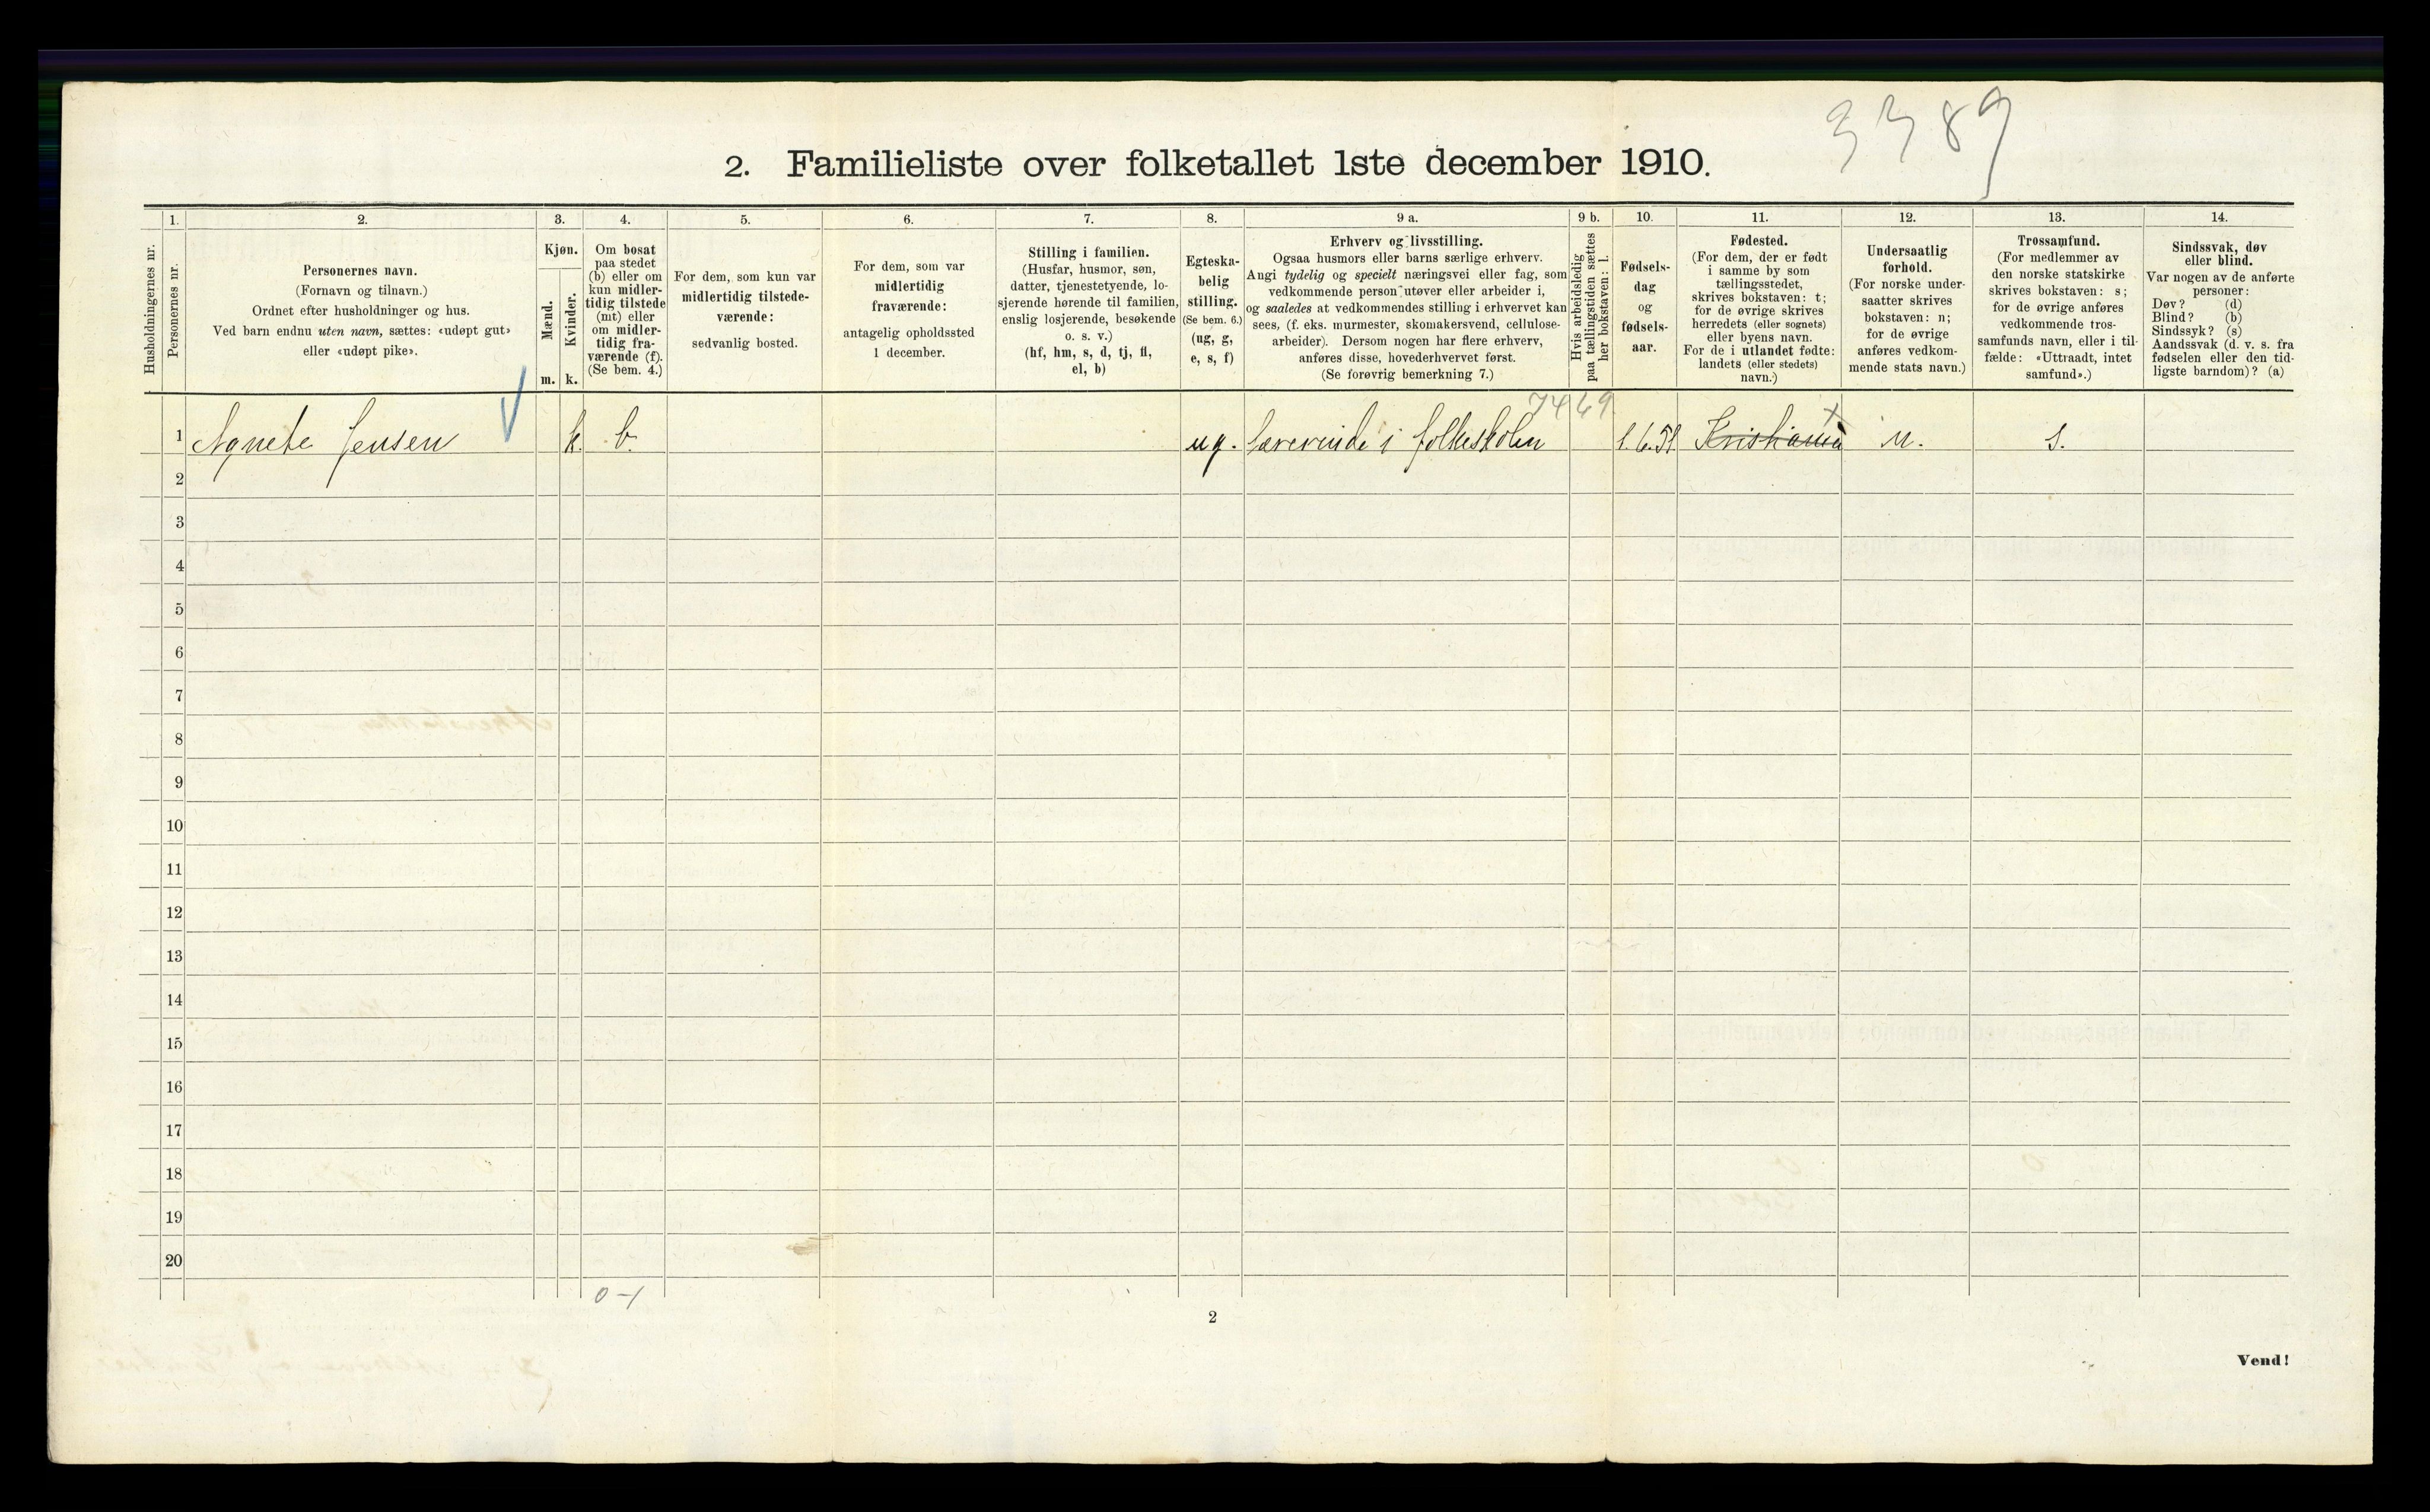 3389
2. Familieliste over folketallet 1ste december 1910.
Husholdningernes nr.
1.
Personernes nr.
2.
Personernes navn.
(Fornavn og tilnavn.)
Ordnet efter husholdninger og hus.
Ved barn endnu uten navn, sættes: «udøpt gut»
eller «udøpt pike».
3.
Kjøn.
Mænd.
Kvinder.
m. k.
4.
Om bosat
paa stedet
(b) eller om
kun midler-
tidig tilstede
(mt) eller
om midler-
tidig fra-
værende (f).
(Se bem. 4.)
5.
For dem, som kun var
midlertidig tilstede-
værende:
sedvanlig bosted.
6.
For dem, som var
midlertidig
fraværende:
antagelig opholdssted
1 december.
7.
Stilling i familien.
(Husfar, husmor, søn,
datter, tjenestetyende, lo-
sjerende hørende til familien,
enslig losjerende, besøkende
o. s. v.)
(hf, hm, s, d, tj, fl,
el, b)
8.
Egteska-
belig
stilling.
(Se bem. 6.)
(ug, g,
e, s, f)
9 a.
Erhverv og livsstilling.
Ogsaa husmors eller barns særlige erhverv.
Angi tydelig og specielt næringsvei eller fag, som
vedkommende person utøver eller arbeider i,
og saaledes at vedkommendes stilling i erhvervet kan
sees, (f. eks. murmester, skomakersvend, cellulose-
arbeider). Dersom nogen har flere erhverv,
anføres disse, hovederhvervet først.
(Se forøvrig bemerkning 7.)
9 b.
Hvis arbeidsledig
paa tællingstiden sættes
her bokstaven: l.
10.
Fødsels-
dag
og
fødsels-
aar.
11.
Fødested.
(For dem, der er født
i samme by som
tællingsstedet,
skrives bokstaven: t;
for de øvrige skrives
herredets (eller sognets)
eller byens navn.
For de i utlandet fødte:
landets (eller stedets)
navn.)
12.
Undersaatlig
forhold.
(For norske under-
saatter skrives
bokstaven: n;
for de øvrige
anføres vedkom-
mende stats navn.)
13.
Trossamfund.
(For medlemmer av
den norske statskirke
skrives bokstaven: s;
for de øvrige anføres
vedkommende tros-
samfunds navn, eller i til-
fælde: «Uttraadt, intet
samfund».)
14.
Sindssvak, døv
eller blind.
Var nogen av de anførte
personer:
Døv? (d)
Blind? (b)
Sindssyk? (s)
Aandssvak (d. v. s. fra
fødselen eller den tid-
ligste barndom)? (a)
7469
1 Agnete Jensen k. b. ug. lærerinde i folkeskolen 1.6.51. Kristiania t n. s.
2
3
4
5
6
7
8
9
10
11
12
13
14
15
16
17
18
19
20
0-1
2
Vend!